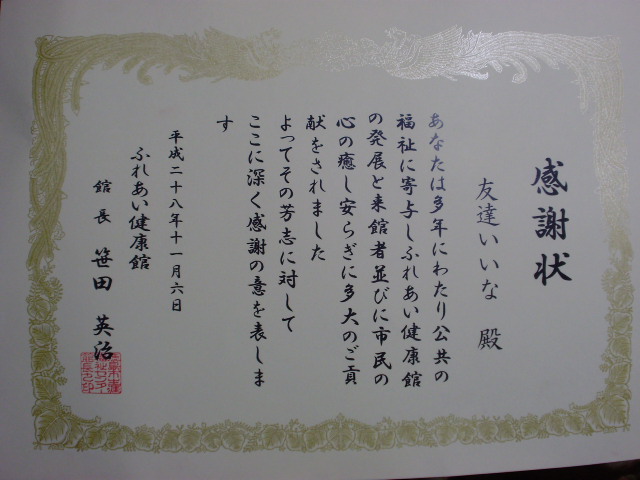 感謝状
友達いいな 殿
あなたは多年にわたり公共の
福祉に寄与しふれあい健康館
の発展と来館者並びに市民の
心の癒し安らぎに多大のご貢
献をされました
よってその芳志に対して
ここに深く感謝の意を表しま
す
平成二十八年十一月六日
ふれあい健康館
館長 笹田 英治